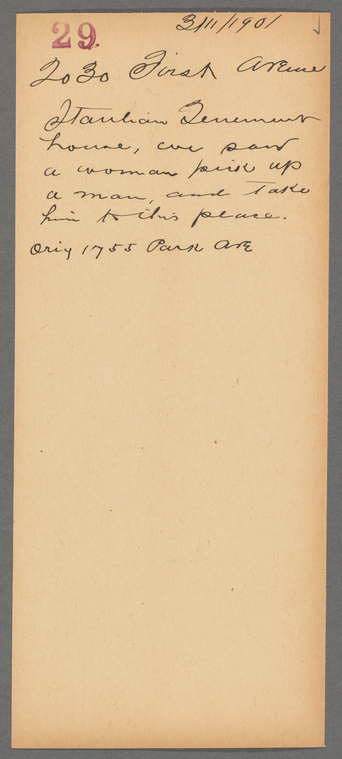 29.
3/11/1901
2030 First Avenue
Itanlian Tenement
house, we saw
a woman pick up
a man, and take
him to this place.
Orig 1755 Park Ave